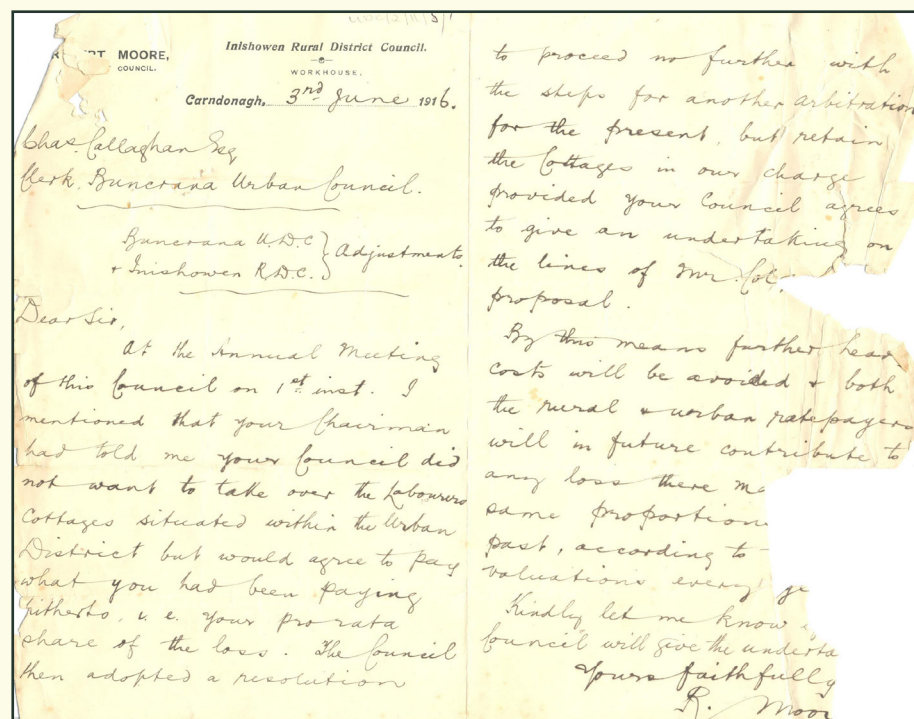 UDC/2/11/5/1
MOORE,
COUNCIL.
Inishowen Rural District Council.
WORKHOUSE,
Carndonagh, 3rd June 1916.
Chas. Callaghan Esq
Clerk, Buncrana Urban Council.
Buncrana U.D.C } Adjustments.
& Inishowen R.D.C.
Dear Sir,
At the Annual Meeting
of this Council on 1st inst. I
mentioned that your Chairman
had told me your Council did
not want to take over the Labourers
Cottages situated within the Urban
District but would agree to pay
what you had been paying
hitherto, i.e. your pro rata
share of the loss. The Council
then adopted a resolution
to proceed no further with
the steps for another arbitration
for the present, but retain
the Cottages in our charge
provided your Council agrees
to give an undertaking on
the lines of Mr.
proposal.
By this means further
costs will be avoided & both
the rural & urban ratepayers
will in future contribute to
any loss there
same proportion
past, according to
valuations every
Kindly let me know
Council will give the
Yours faithfully
R.